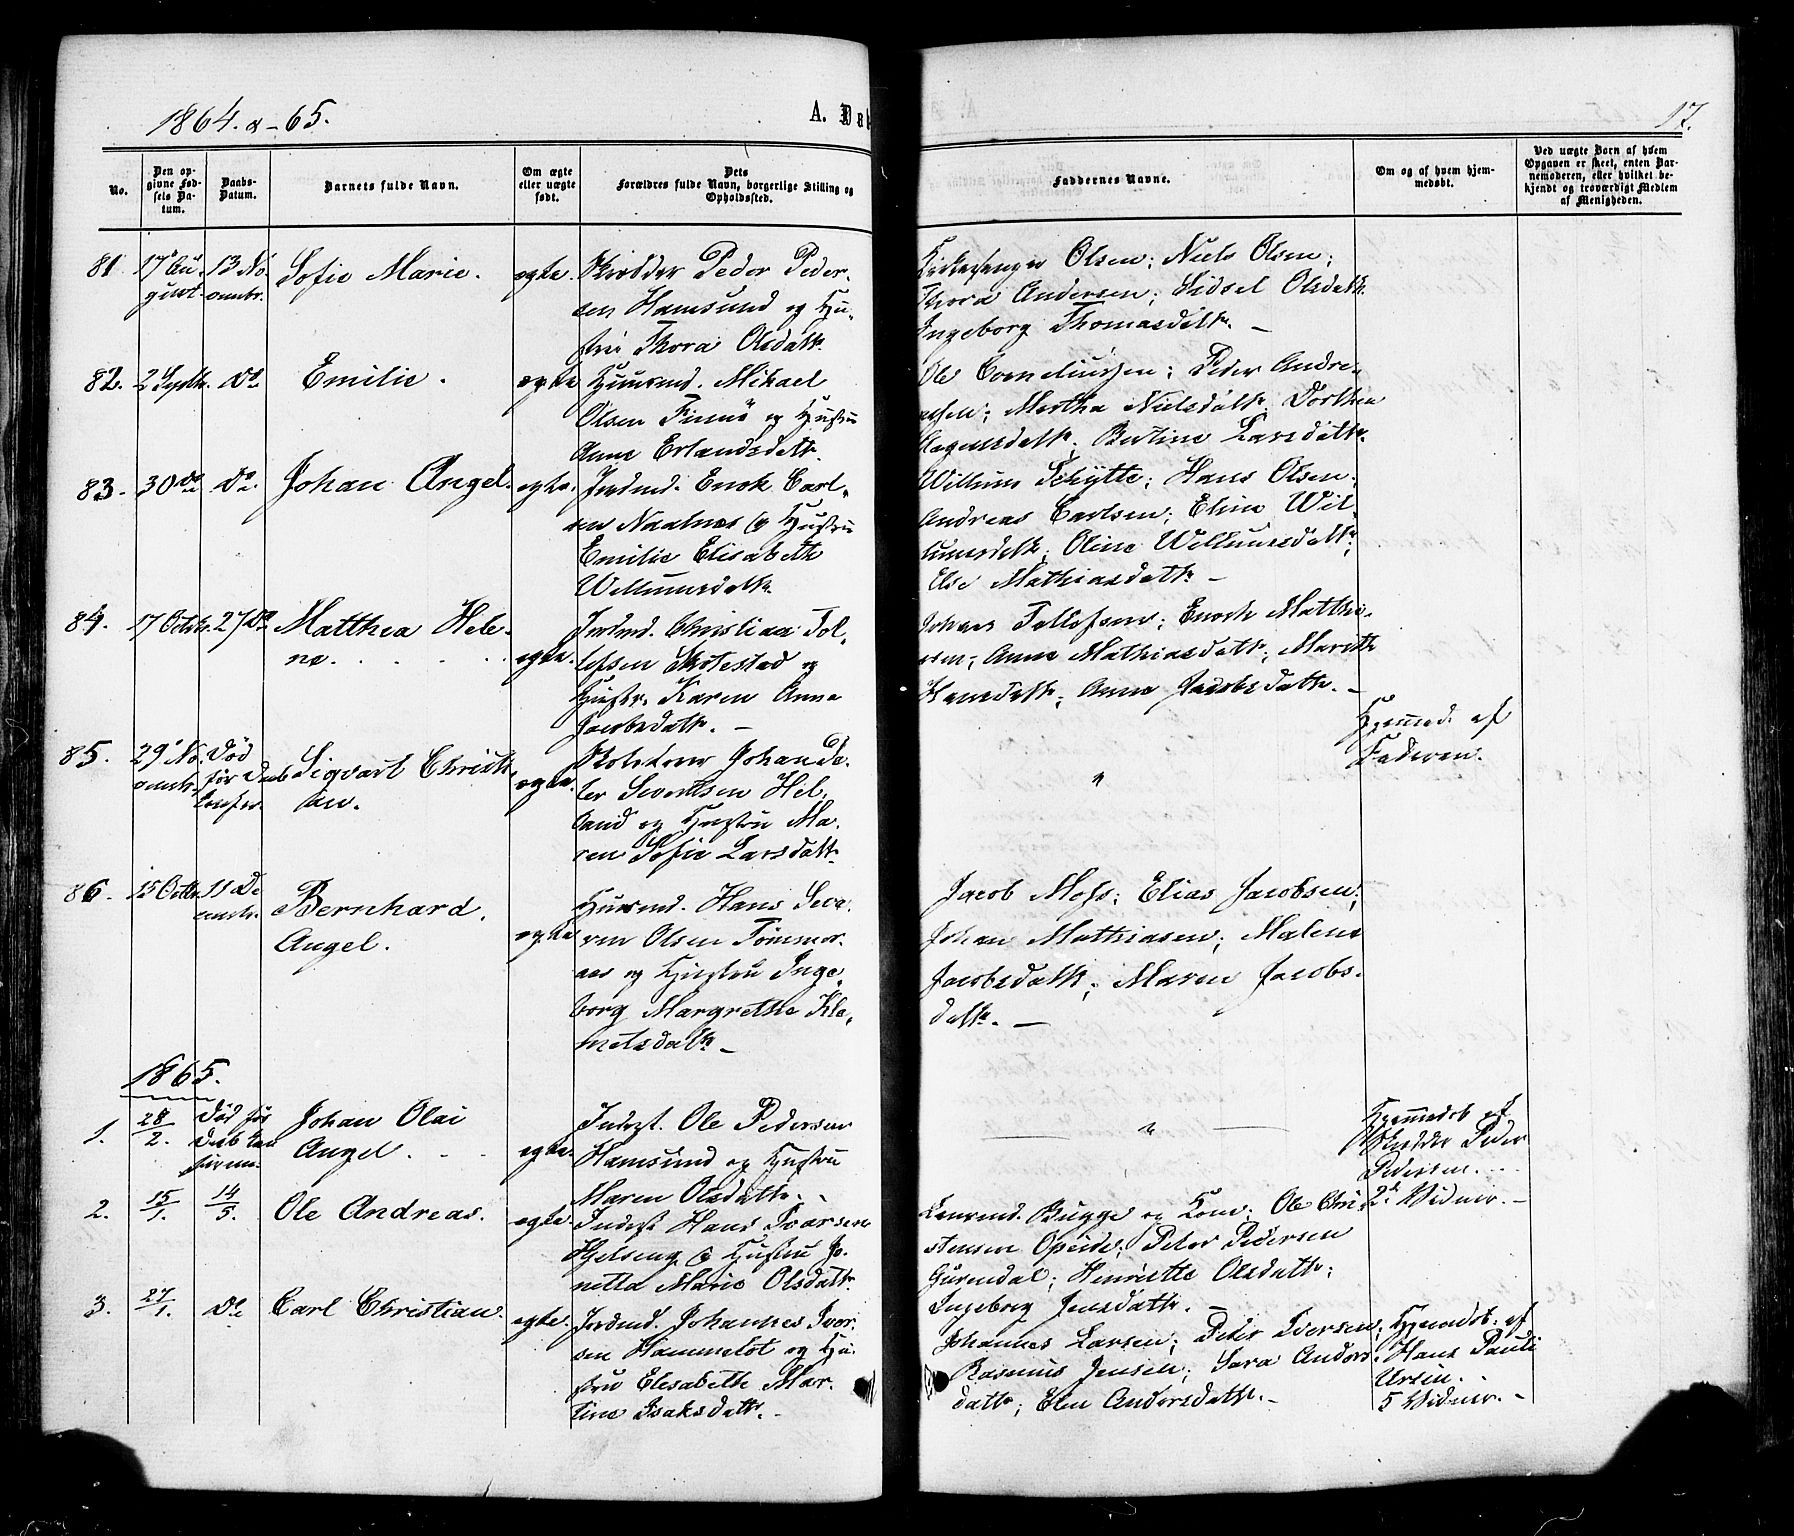 1864. & - 65.
A. Dab
17.
No.
Den op-
givne Fød-
sels Da-
tum.
Daabs-
Datum.
Barnets fulde Navn.
Om ægte
eller uægte
født.
Dets
Forældres fulde Navn, borgerlige Stilling og
Opholdssted.
Faddernes Navne.
Om og af hvem hjem-
medøbt.
Ved uægte Barn af hvem
Opgaven er skeet, enten Bar-
nemoderen, eller hvilket be-
kjendt og troværdigt Medlem
af Menigheden.
81. 17de Au-
gust. 13 No-
vembr. Sofie Marie. egte. Skrædder Peder Peder-
sen Hamsund og Hu-
stru Thora Olsdattr.
Kirkesanger Olsen; Niels Olsen;
Thora Andersen; Sidsel Olsdattr.
Ingeborg Thomasdattr. —
82. 2 Septbr. Do. Emilie. egte Huusmd. Mikael
Olsen Finnø og Hustru
Anne Erlandsdattr.
Ole Corneliussen; Peder Andre-
assen; Martha Nielsdattr. Dorthea
Aagensdattr. Bertine Larsdattr.
83. 30 Do Do. Johan Angel. egte. Jordmd. Enok Carl-
sen Naalnæs og Hustru
Emilie Elisabeth
Willumsdattr.
Willum Schytte; Hans Olsen;
Andreas Carlsen; Eline Wil-
lumsdattr; Oline Willumsdattr;
Else Mathiasdattr. —
84. 17 Octbr. 27 Do Matthea Hele-
ne. egte. Jordmd. Christian Tol-
lefsen Skotestad og
Hustr. Karen Anna
Jacobsdattr. —
Johan Tollefsen; Enoch Matthi-
sen; Anne Mathiasdattr; Mareth
Hansdattr; Anne Jacobsdattr. —
85. 29 No-
vembr. Død
før Daab
Sigvart Christi-
an. egte. Johan Pe-
ter Sivertsen Hel-
land og Hustru Ma-
ren Sofie Larsdattr.
"
Hjemmed. af
Faderen.
86. 15 Octbr. 11 De-
cembr. Bernhard
Angel. egte Huusmd. Hans Seve-
ren Olsen Tømmer-
aas og Hustru Inge-
borg Margrethe Kle-
metsdattr —
Jacob Moss; Elias Jacobsen;
Johan Mathiasen; Malene
Jacobsdattr; Maren Jacobs-
dattr. —
1865.
1. 28/2. Død før
Daab kun
Johan Olai
Angel. egte. Inderst. Ole Pedersen
Hamsund og Hustru
Maren Olsdattr. -
— " —
Hjemmedøb. af
Skrædder Peder
Pedersen.
2de Vidner. —
2. 15/1. 14/5. Ole Andreas. egte. Inderst Hans Ivarsen
Hjelseng og Hustru Jo-
netta Marie Olsdattr.
Bugge og Kone; Ole Chri-
stensen Opeide; Peter Pedersen
Gurendal; Henriette Olsdattr;
Ingeborg Jensdattr. —
3. 27/1. Do. Carl Christian. egte. Jordmd. Johannes Iver-
sen Hammelot og Hu-
stru Elesabeth Mar-
tine Isaksdattr. -
Johannes Larsen; Peder Iversen;
Rasmus Jensen; Sara Anders-
dattr; Elen Andersdattr. -
Hjemmedøb. af
Hans Pauli
Ursin.
5 Vidner. —